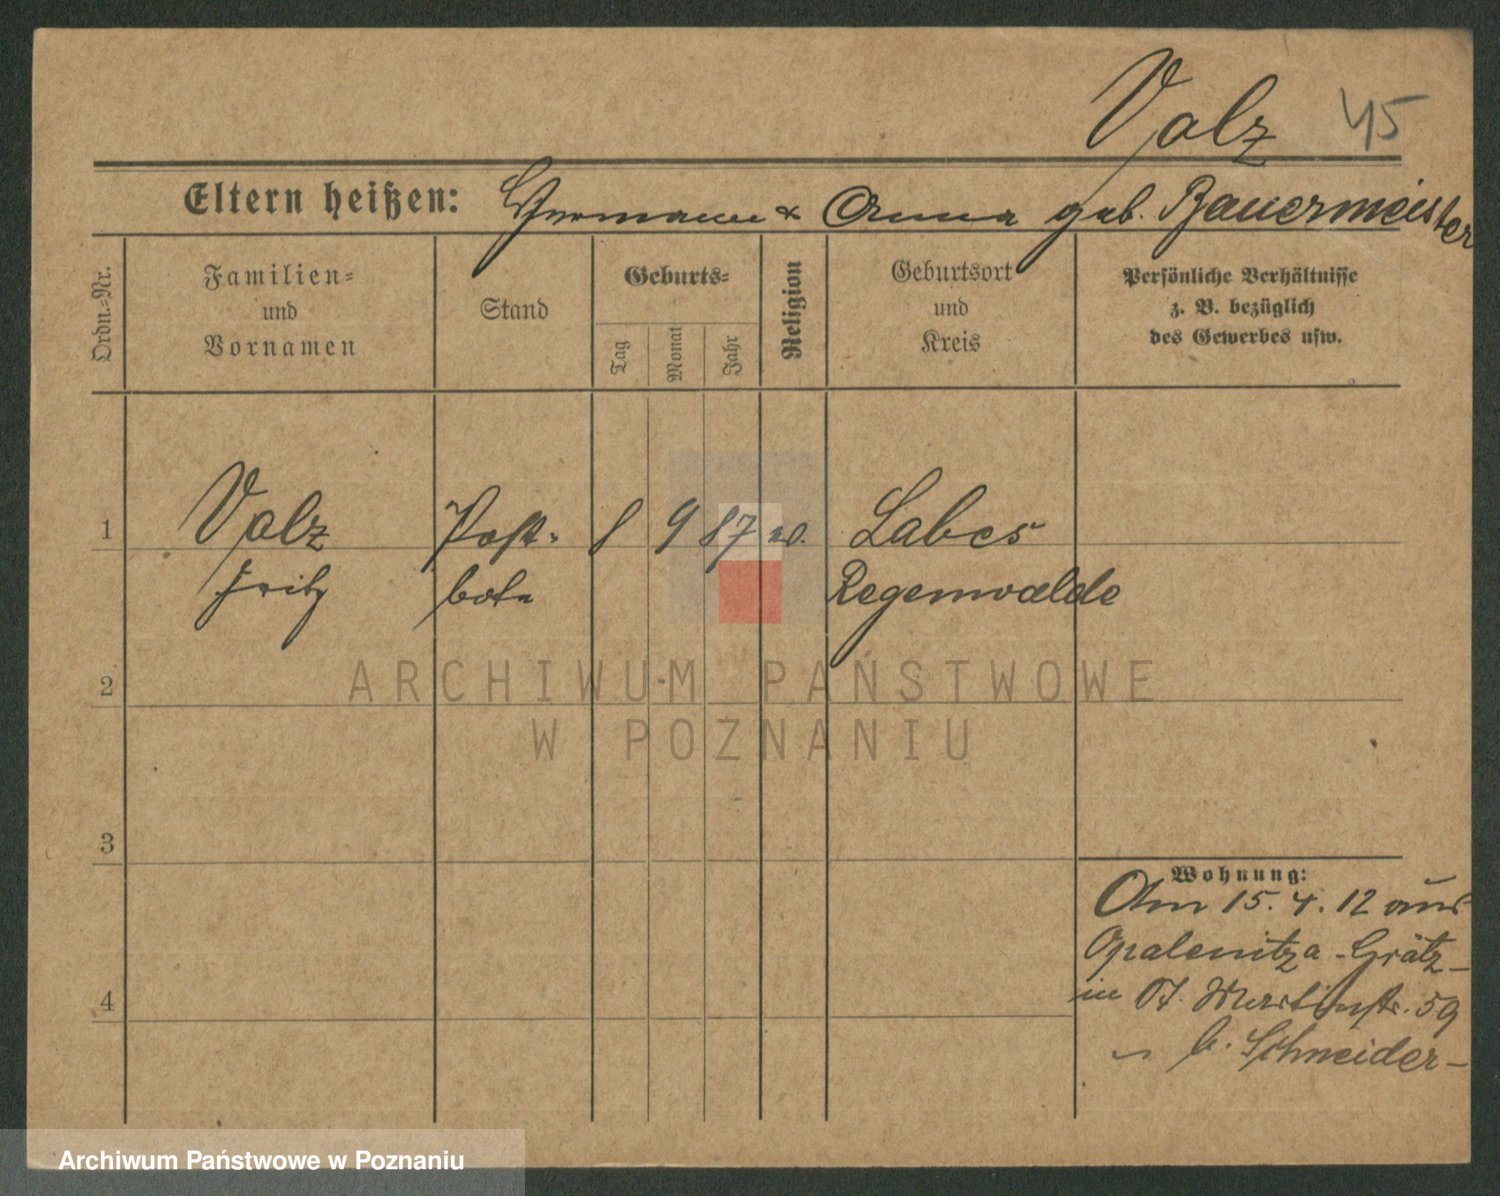 Volz 45
Eltern heißen: Hermann & Anna geb. Bauermeister
Ordn.-Nr.
Familien-
und
Vornamen
Stand
Geburts-
Tag
Monat
Jahr
Religion
Geburtsort
und
Kreis
Persönliche Verhältnisse
z. B. bezüglich
des Gewerbes usw.
1 Volz Post- 8 9 87 ev. Labes
Fritz bote Regenwalde
2
3
4
Wohnung:
Am 15. 4. 12 aus
Opalenitza - Grätz -
in St. Martinstr. 59
b. Schneider -
ARCHIWUM PAŃSTWOWE
W POZNANIU
Archiwum Państwowe w Poznaniu